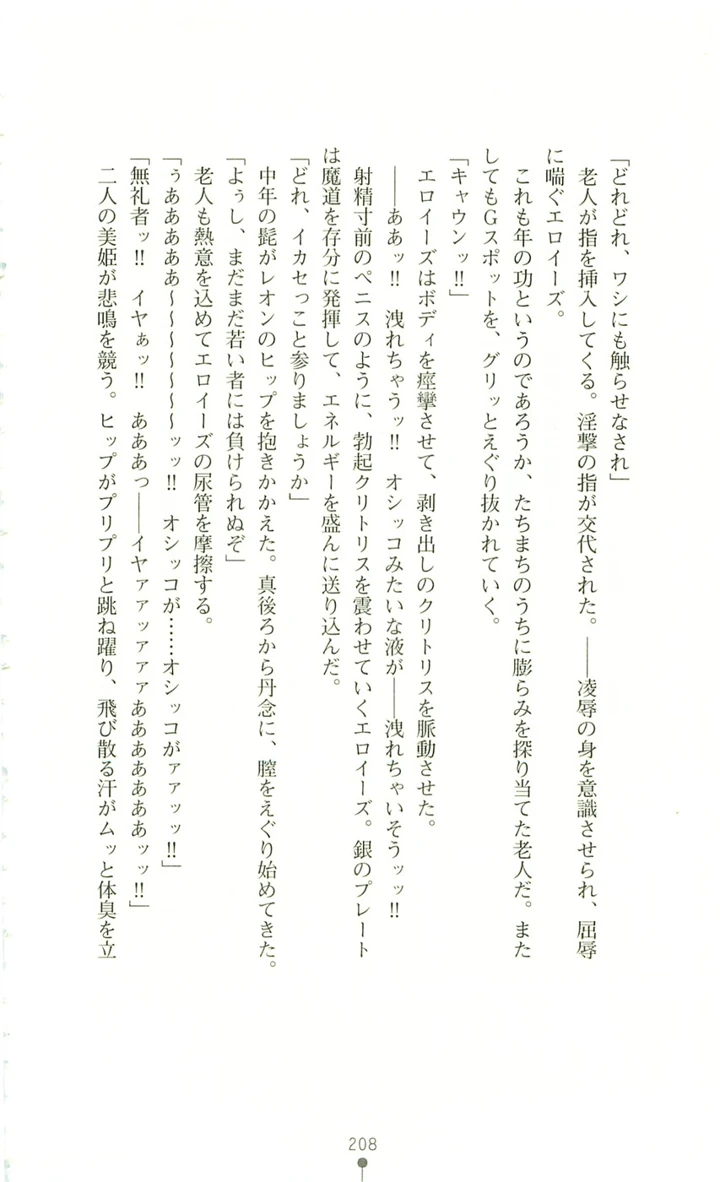 「どれどれ、ワシにも触らせなされ」
老人が指を挿入してくる。淫撃の指が交代された。――凌辱の身を意識させられ、屈辱
に喘ぐエロイーズ。
これも年の功というのであろうか、たちまちのうちに膨らみを探り当てた老人だ。また
してもGスポットを、グリッとえぐり抜かれていく。
「キャウンッ!!」
エロイーズはボディを痙攣させて、剥き出しのクリトリスを脈動させた。
――ああッ!! 洩れちゃうッ!! オシッコみたいな液が――洩れちゃいそうッッ!!
射精寸前のペニスのように、勃起クリトリスを震わせていくエロイーズ。銀のプレート
は魔道を存分に発揮して、エネルギーを盛んに送り込んだ。
「どれ、イカセっこと参りましょうか」
中年の髭がレオンのヒップを抱きかかえた。真後ろから丹念に、膣をえぐり始めてきた。
「よぅし、まだまだ若い者には負けられぬぞ」
老人も熱意を込めてエロイーズの尿管を摩擦する。
「ぅああああぁ～～～～～～ッッ!! オシッコが……オシッコがァァッッ!!」
「無礼者ッ!! イヤぁッ!! あああっ――イヤァァッァァァあああああああッッ!!」
二人の美姫が悲鳴を競う。ヒップがプリプリと跳ね躍り、飛び散る汗がムッと体臭を立
208